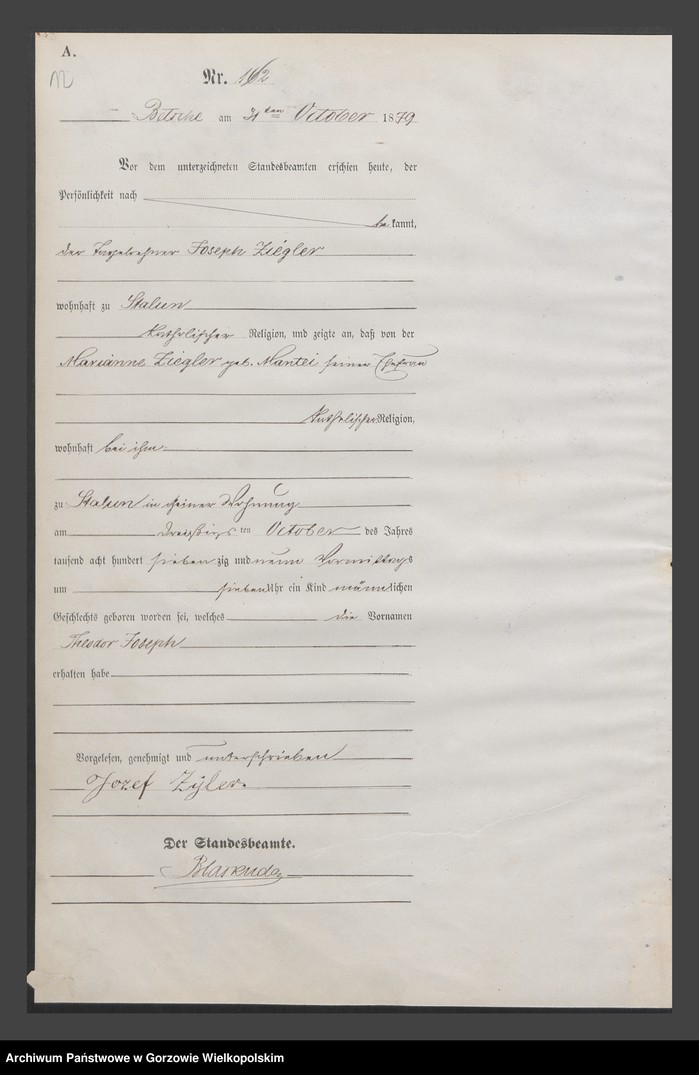 A.
Nr. 162
Betsche am 31 ten October 1879
Vor dem unterzeichneten Standesbeamten erschien heute, der
Persönlichkeit nach
be kannt,
der Tagelöhner Joseph Ziegler
wohnhaft zu Stalun
katholischer Religion, und zeigte an, daß von der
Marianne Ziegler geb. Mantei seiner Ehefrau
katholischer Religion,
wohnhaft bei ihm
zu Stalun in seiner Wohnung
am dreißigs ten October des Jahres
tausend acht hundert sieben zig und neun Vormittags
um sieben Uhr ein Kind männ lichen
Geschlechts geboren worden sei, welches die Vornamen
Theodor Joseph
erhalten habe
Vorgelesen, genehmigt und unterschrieben
Jozef Zyler
Der Standesbeamte.
Blaskuda
Archiwum Państwowe w Gorzowie Wielkopolskim